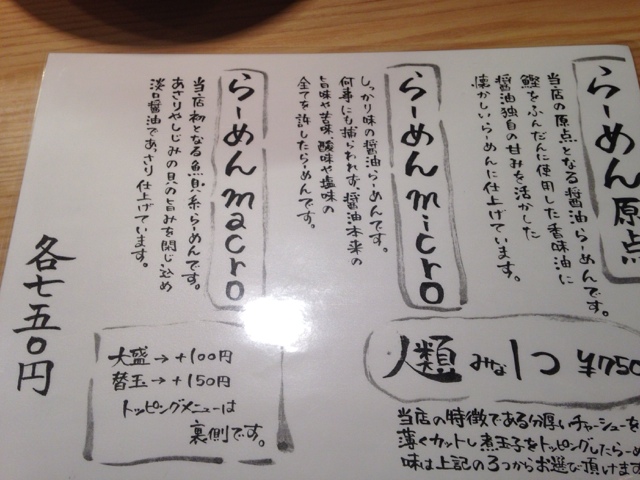 らーめん原点
当店の原点となる醤油らーめんです。
鰹をふんだんに使用した香味油に
醤油独自の甘みを活かした
懐かしいらーめんに仕上げています。
らーめんmicro
しっかり味の醤油らーめんです。
何事にも捕らわれず、醤油本来の
旨味や苦味、酸味や塩味の
全てを許したらーめんです。
らーめんmacro
当店初となる魚貝系らーめんです。
あさりやしじみの貝の旨みを閉じ込め
淡口醤油であっさり仕上げています。
各七五〇円
人類みな1つ ¥750
当店の特徴である分厚いチャーシューを
薄くカットし煮玉子をトッピングしたらーめ
味は上記の3つからお選び頂けます
大盛→+100円
替玉→+150円
トッピングメニューは
裏側です。